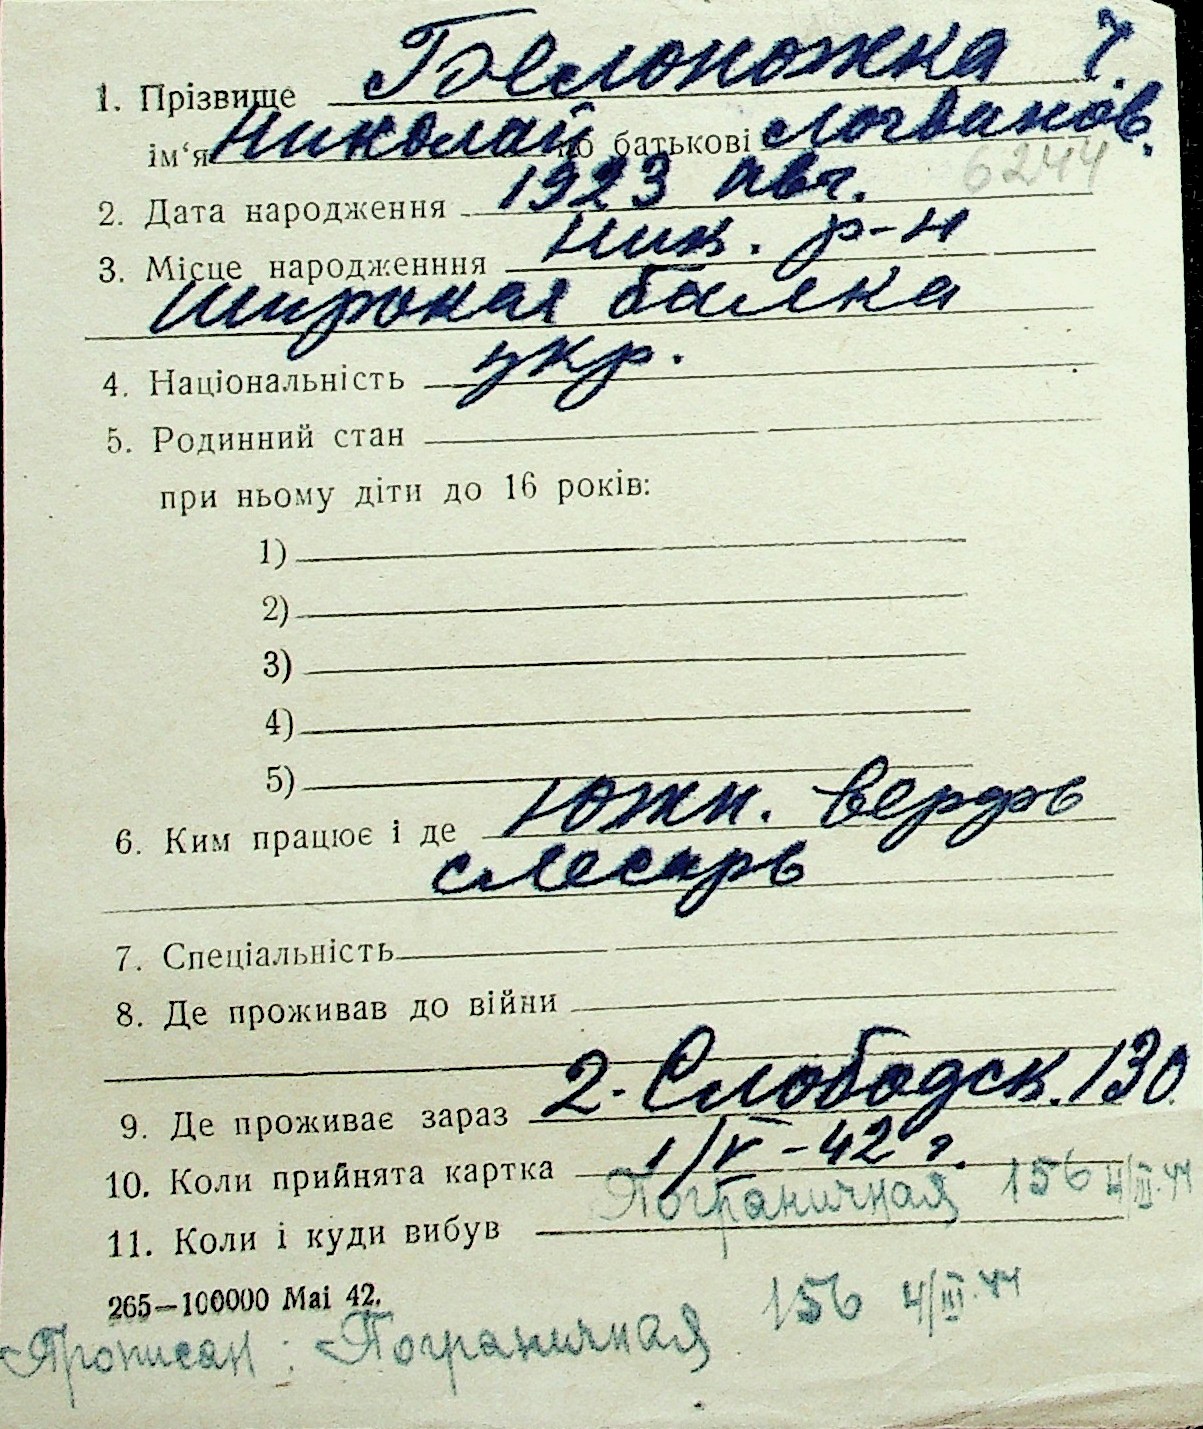 1. Прізвище Белоножка Ч.
ім‘я Николай по батькові Логванов.
6244
2. Дата народження 1923 авг.
3. Місце народженння Ник. р-н
Широкая балка
4. Національність укр.
5. Родинний стан
при ньому діти до 16 років:
1)
2)
3)
4)
5)
6. Ким працює і де Южн. верфь
слесарь
7. Спеціальність
8. Де проживав до війни
9. Де проживає зараз 2. Слободск. 130
10. Коли прийнята картка 1/V-42 г.
Пограничная 156 4/III.44
11. Коли і куди вибув
265—100000 Mai 42.
Прописан: Пограничная 156 4/III.44